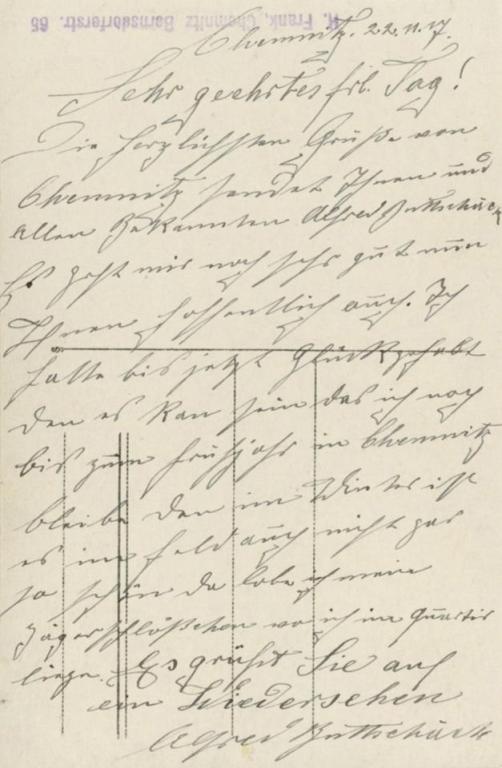 R. Frank, Chemnitz Bernsdorferstr. 65
Chemnitz. 22.11.17.
Sehr geehrtes frl. Tag!
Die herzlichsten Grüße von
Chemnitz sendet Ihnen und
Allen Bekannten Alfred
Es geht mir noch sehr gut nun
Ihnen hoffentlich auch. Ich
hatte bis jetzt Glück gehabt
den es kan sein das ich noch
bis zum Frühjahr in Chemnitz
bleibe den im Winter ist
es im Feld auch nicht gar
so schön da lobe ich mein
Jägerschlößchen wo ich im Quartir
liege. Es grüßt Sie auf
ein Wiedersehen
Alfred